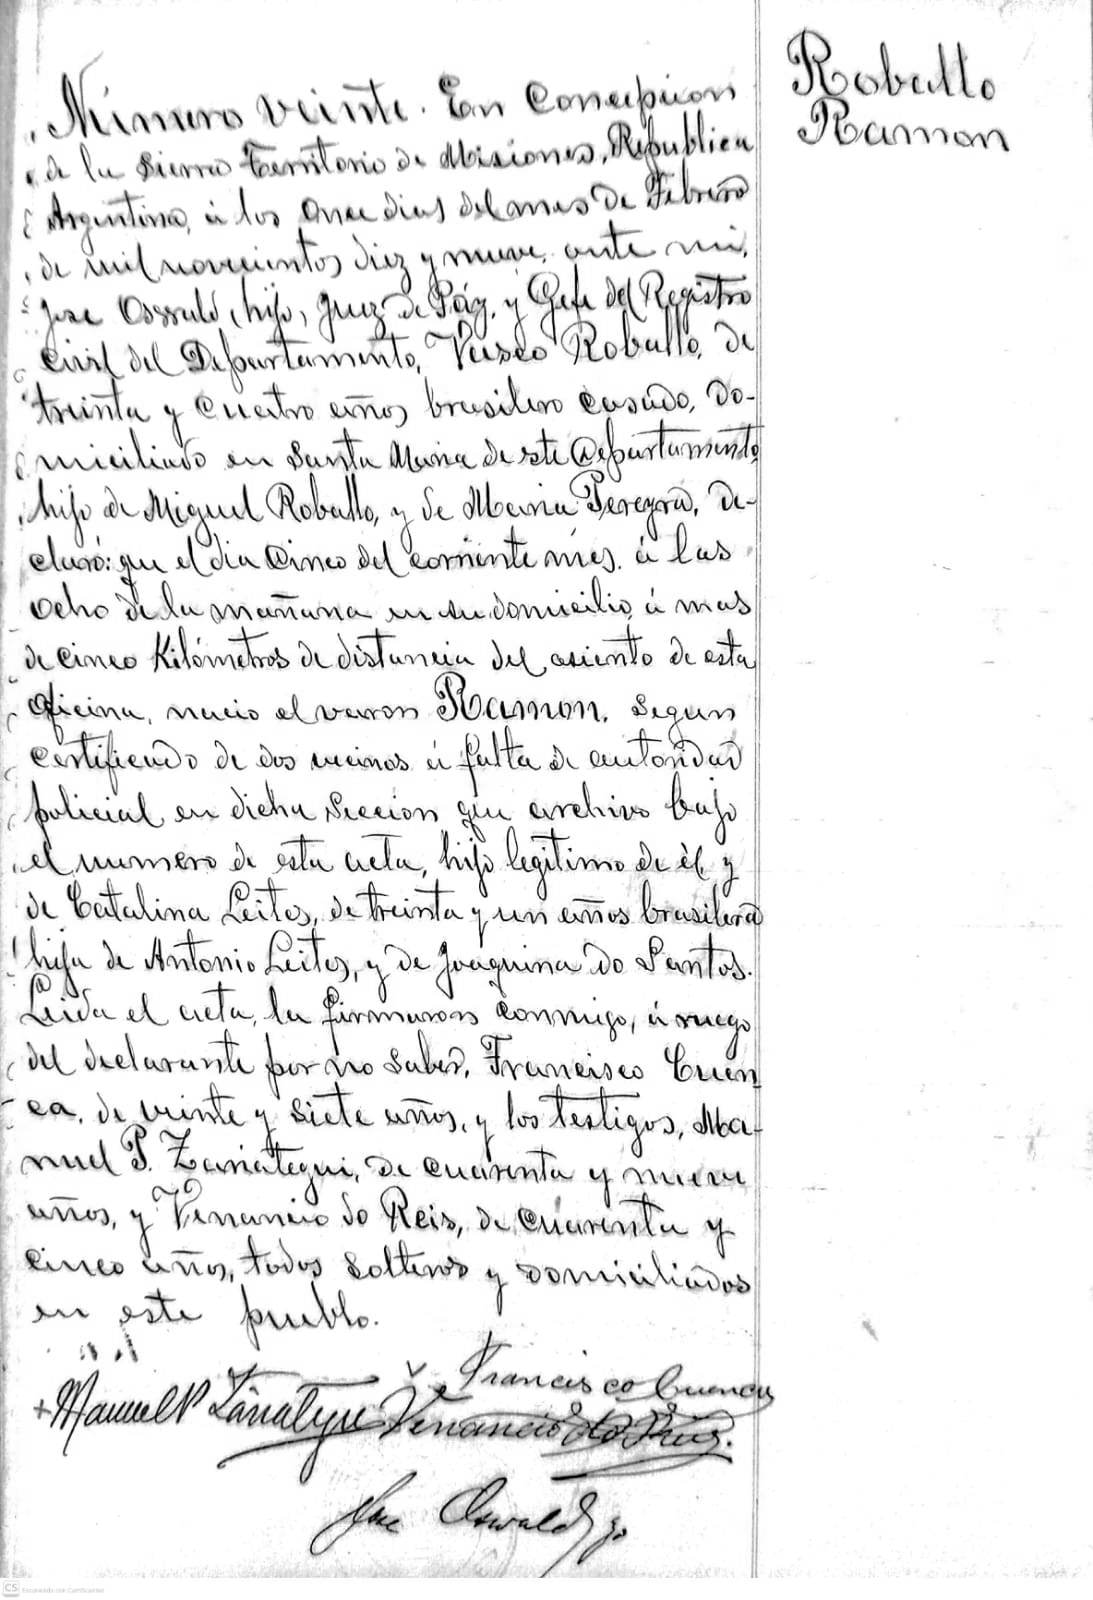 Roballo
Ramon
Número veinte. En Concepcion
de la Sierra Territorio de Misiones, Republica
Argentina, á los once dias del mes de Febrero
de mil novecientos diez y nueve, ante mi,
José Ossvald, hijo, Juez de Paz, y Gefe del Registro
Civil del Departamento, Vasco Roballo, de
treinta y cuatro años brasilero casado, do-
miciliado en Santa Maria de este Departamento,
hijo de Miguel Roballo, y de Maria Pereyra, de-
claró: que el dia cinco del corriente mes, á las
ocho de la mañana en su domicilio, á mas
de cinco Kilómetros de distancia del asiento de esta
oficina, nacio el varon Ramon. Segun
certificado de dos vecinos á falta de autoridad
policial en dicha Seccion que archivo bajo
el numero de esta acta, hijo legitimo de él y
de Catalina Leites, de treinta y un años brasilera
hija de Antonio Leites, y de Joaquina do Santos.
Leida el acta, la firmaron conmigo, á ruego
del declarante por no saber, Francisco Cuen
ca, de veinte y siete años, y los testigos, Ma-
nuel P. Zariategui, de cuarenta y nueve
años, y Venancio do Reis, de cuarenta y
cinco años, todos solteros y domiciliados
en este pueblo.
Francisco Cuenca
Manuel P
Venancio do Reis.
José Oswald
CS Escaneado con CamScanner